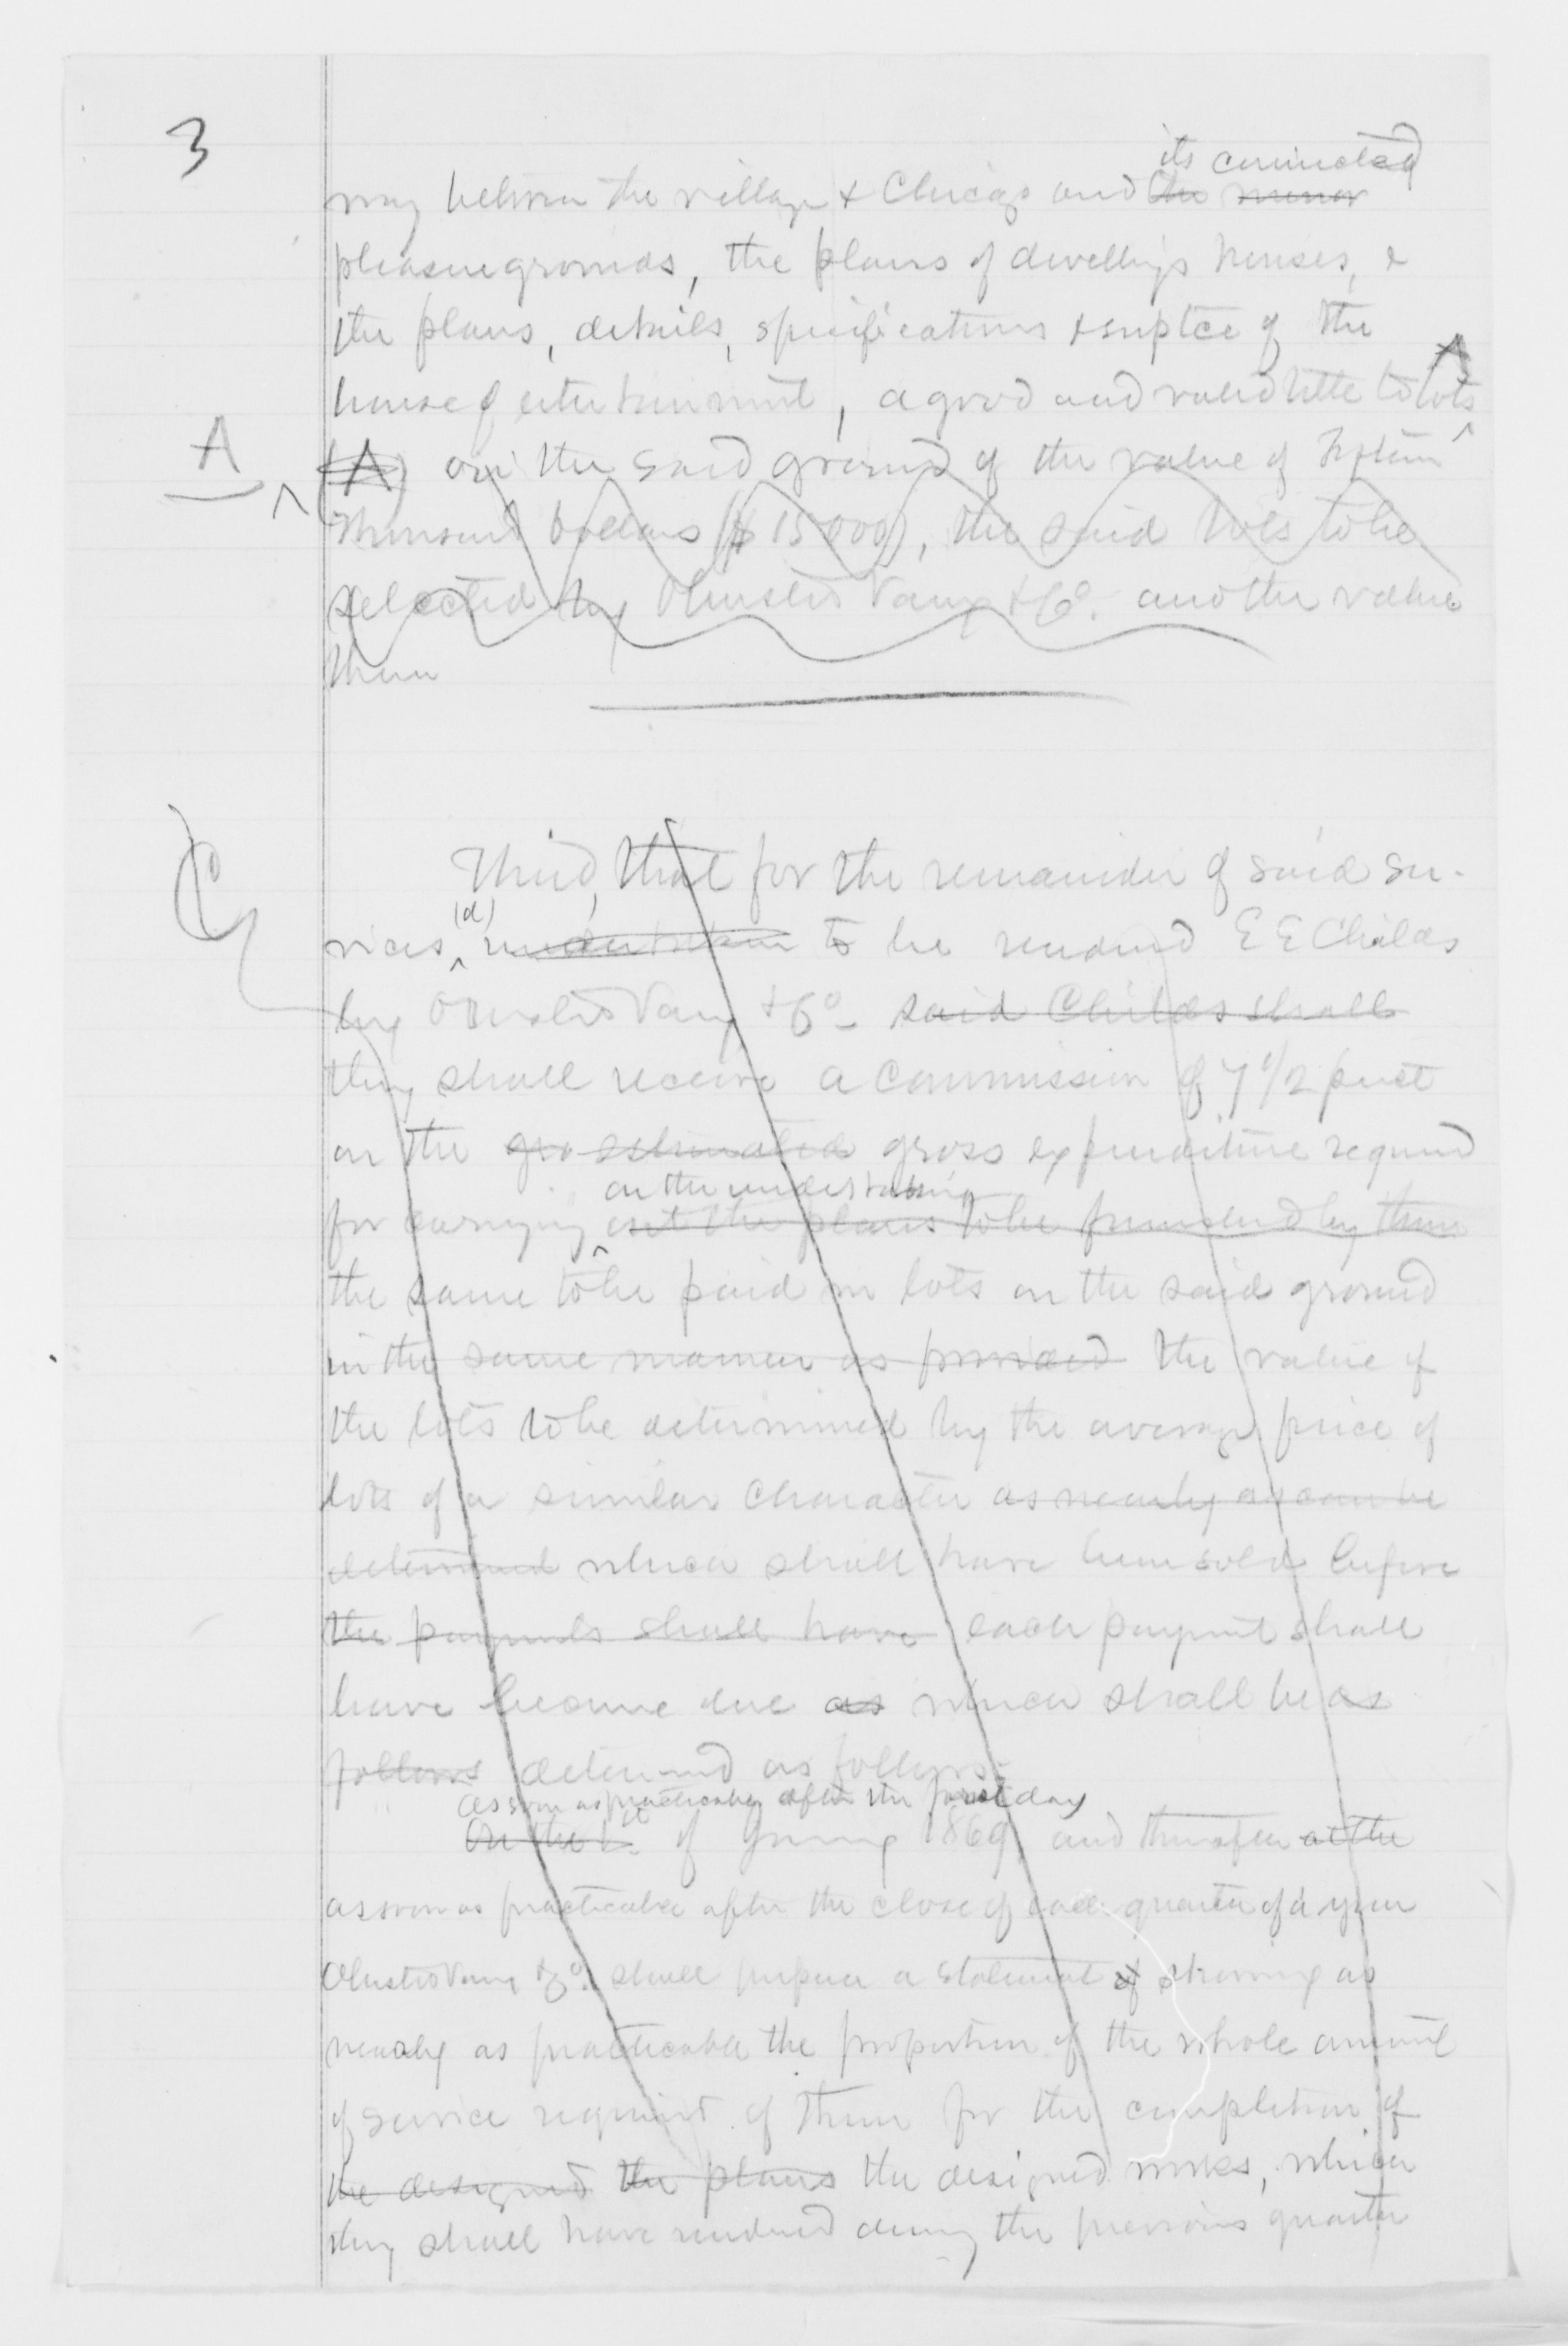 3
its connected
way between the village & Chicago and the minor
pleasuregrounds, the plans of dwellings houses, &
the plans, details, specifications & suptce of the
A
house of entertainment, a good and valid title to lots
A
(A) on the said ground of the value of fifteen
thousand dollars ($15000), the said lots to be
selected by Olmsted Vaux & Co. and the value
them
C
Third, that for the remainder of said ser-
(d)
vices, undertaken to be rendered E E Childs
by Olmsted Vaux & Co said Childs shall
they shall receive a commission of 7 1/2 perct
on the gro estimated gross expenditure required
on the undertaking
for carrying out the plans to be furnished by them
the same to be paid in lots on the said ground
in the same manner as provided the value of
the lots to be determined by the average price of
lots of a similar character as nearly as can be
determined which shall have been sold before
the payments shall have each payment shall
have become due as which shall be as
follows determined as follows:
As soon as practicable after the first day
On the 1st of January 1869, and thereafter at the
as soon as practicable after the close of each quarter of a year
Olmsted Vaux & Co. shall prepare a statement of showing as
nearly as practicable the proportion of the whole amount
of service required of them for the completion of
the designed the plans the designed works, which
they shall have rendered during the previous quarter